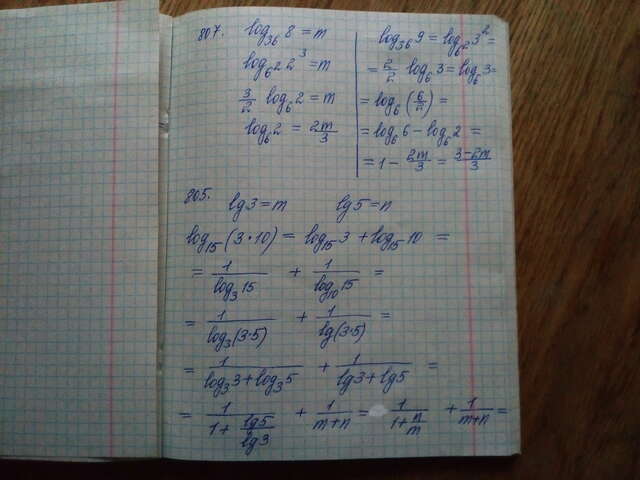 807. log₃₆ 8 = m
log₆² 2³ = m
3/2 log₆ 2 = m
log₆ 2 = 2m/3
log₃₆ 9 = log₆² 3² =
= 2/2 log₆ 3 = log₆ 3 =
= log₆ (6/2) =
= log₆ 6 − log₆ 2 =
= 1 − 2m/3 = (3−2m)/3
805. lg 3 = m lg 5 = n
log₁₅ (3·10) = log₁₅ 3 + log₁₅ 10 =
= 1/(log₃ 15) + 1/(log₁₀ 15) =
= 1/(log₃(3·5)) + 1/(lg(3·5)) =
= 1/(log₃ 3 + log₃ 5) + 1/(lg 3 + lg 5) =
= 1/(1 + lg 5/lg 3) + 1/(m+n) = 1/(1 + n/m) + 1/(m+n) =